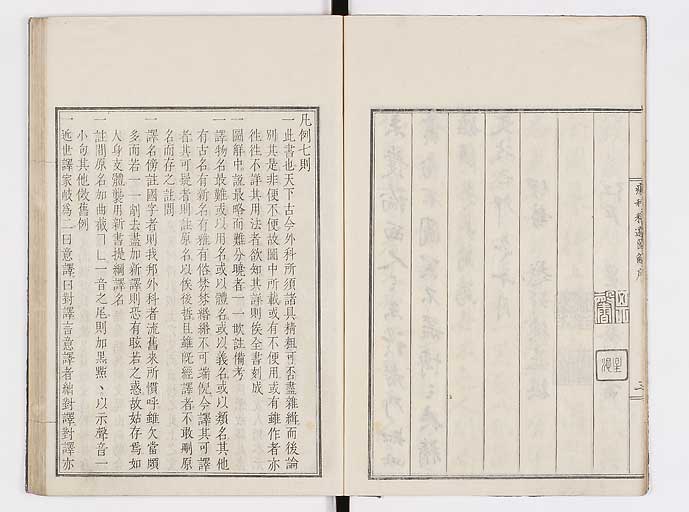 瘍科精選圖解序
三
凡例七則
一此書也天下古今外科所須諸具精粗可否盡雜緝而後論
別其是非便不便故圖中所載或有不便用或有雖作者亦
徃徃不詳其用法者欲知其詳則俟全書刻成
一圖解中說最略而難分曉者一一欵註備考
一譯物名最難或以用名或以體名或以義名或以類名其他
有古名有新名有雅有俗棼棼綹綹不可端倪今譯其可譯
者其可疑者則註原名以俟後哲且雖旣經譯者不敢刪原
名而存之註間
一譯名傍註國字者則我邦外科者流舊來所慣呼雖欠當頗
多而若一一剷去盡加新譯則恐有眩若之惑故姑存焉如
人身支體襲用新書提綱譯名
一註間原名如曲截「」一音之尾則加黑㸃丶以示聲音一
小句其他倣舊例
一近世譯家岐爲二曰意譯曰對譯言意譯者繙對譯對譯亦